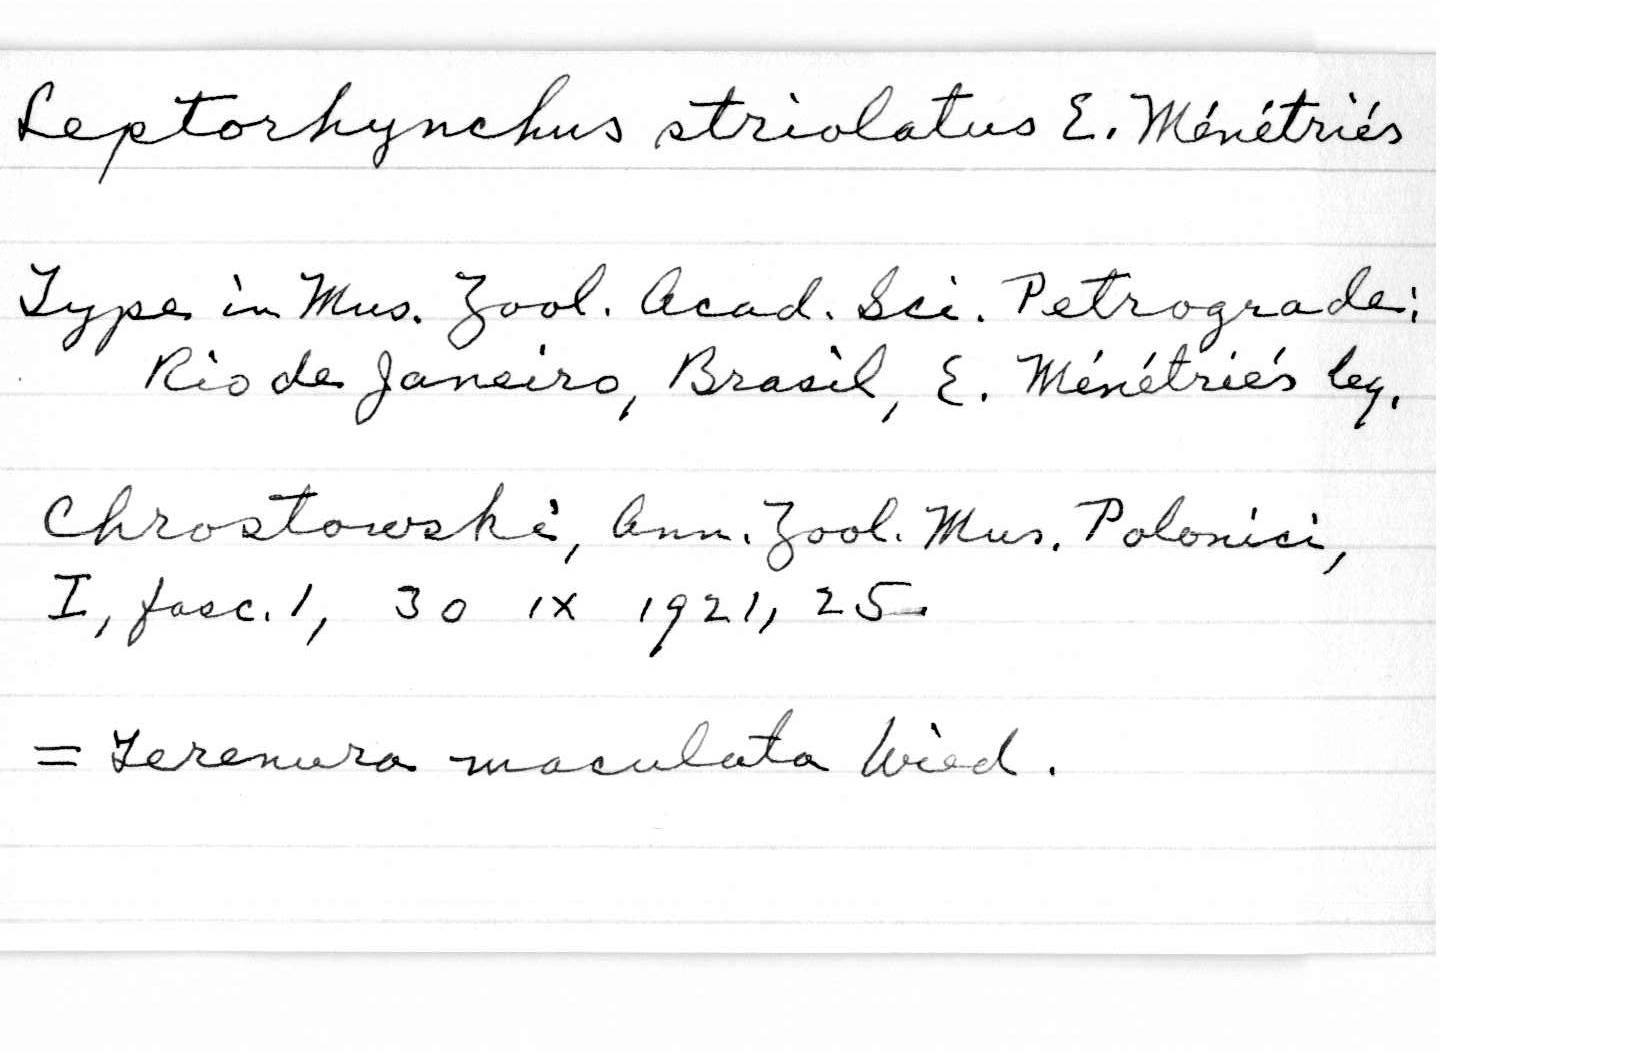 Leptorhynchus striolatus E. Ménétriés
Type in Mus. Zool. Acad. Sci. Petrograde;
Rio de Janeiro, Brasil, E. Ménétriés leg.
Chrostowski, Ann. Zool. Mus. Polonici,
I, fasc. 1, 30 IX 1921, 25.
= Terenura maculata Wied.